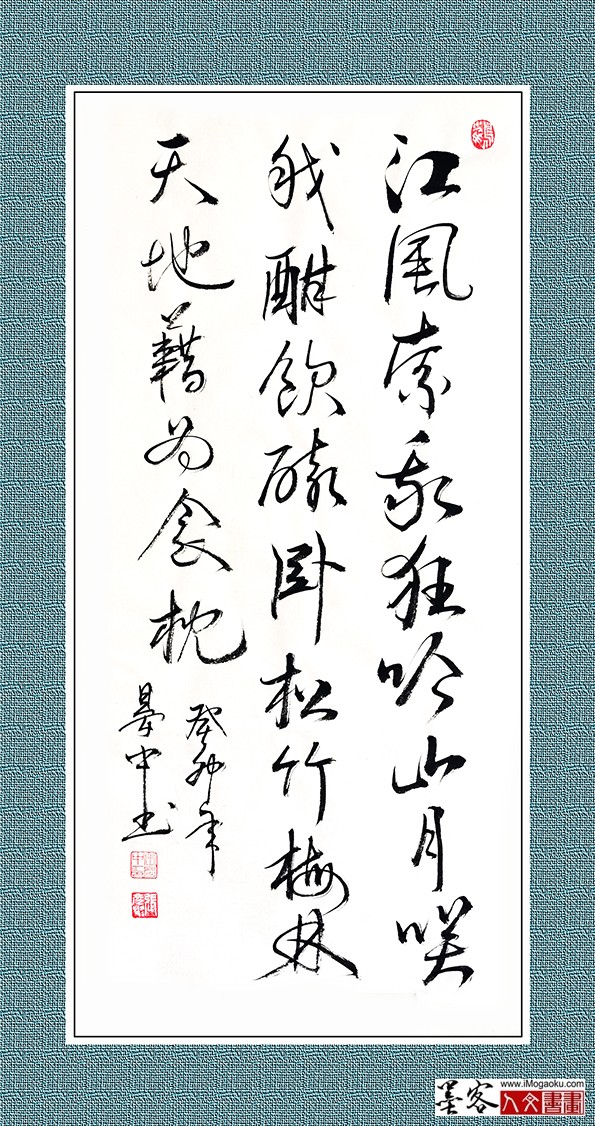 江風索我狂吟山月咲
我酣飲醉卧松竹梅林
天地藉為衾枕
癸卯年
中书
墨客
www.iMogaoku.com
人文書畫